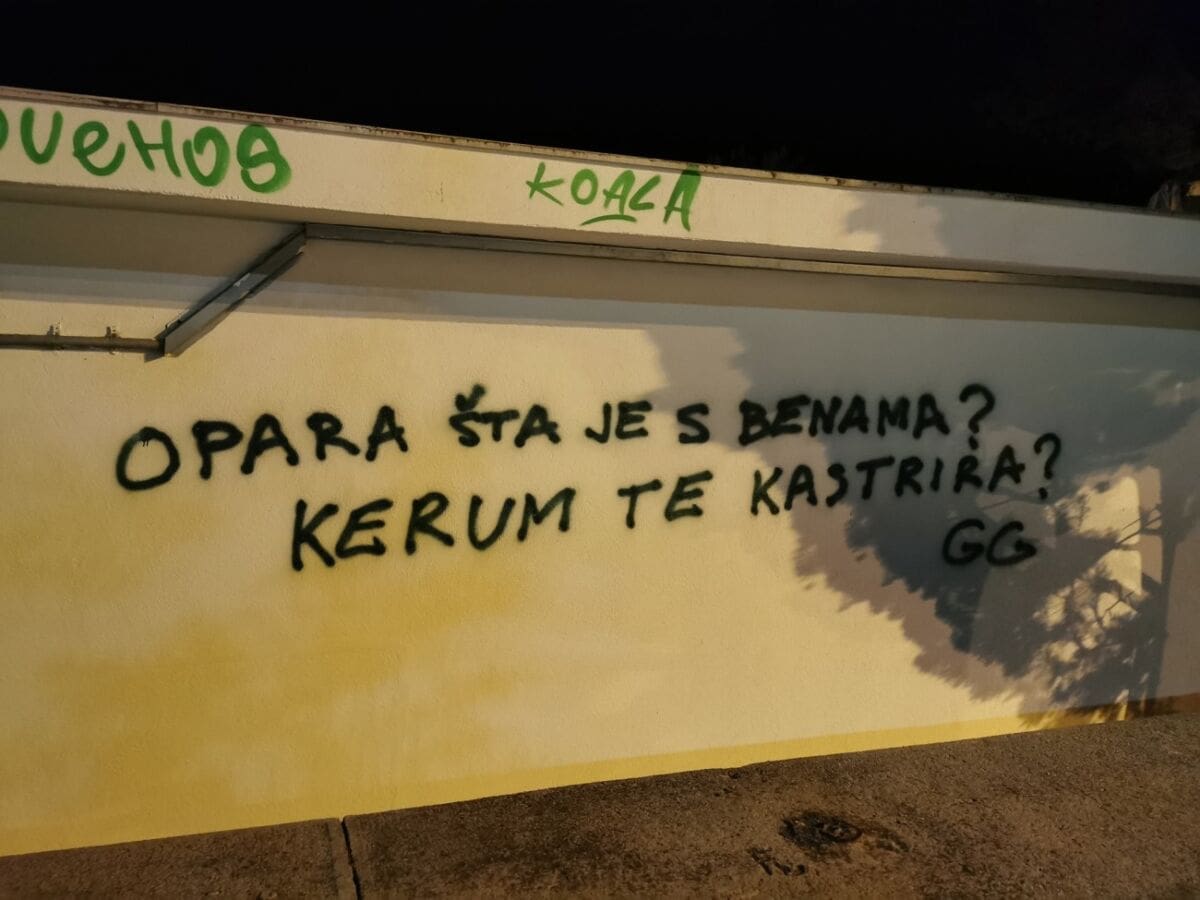 KOALA
OPARA ŠTA JE S BENAMA?
KERUM TE KASTRIRA?
GG